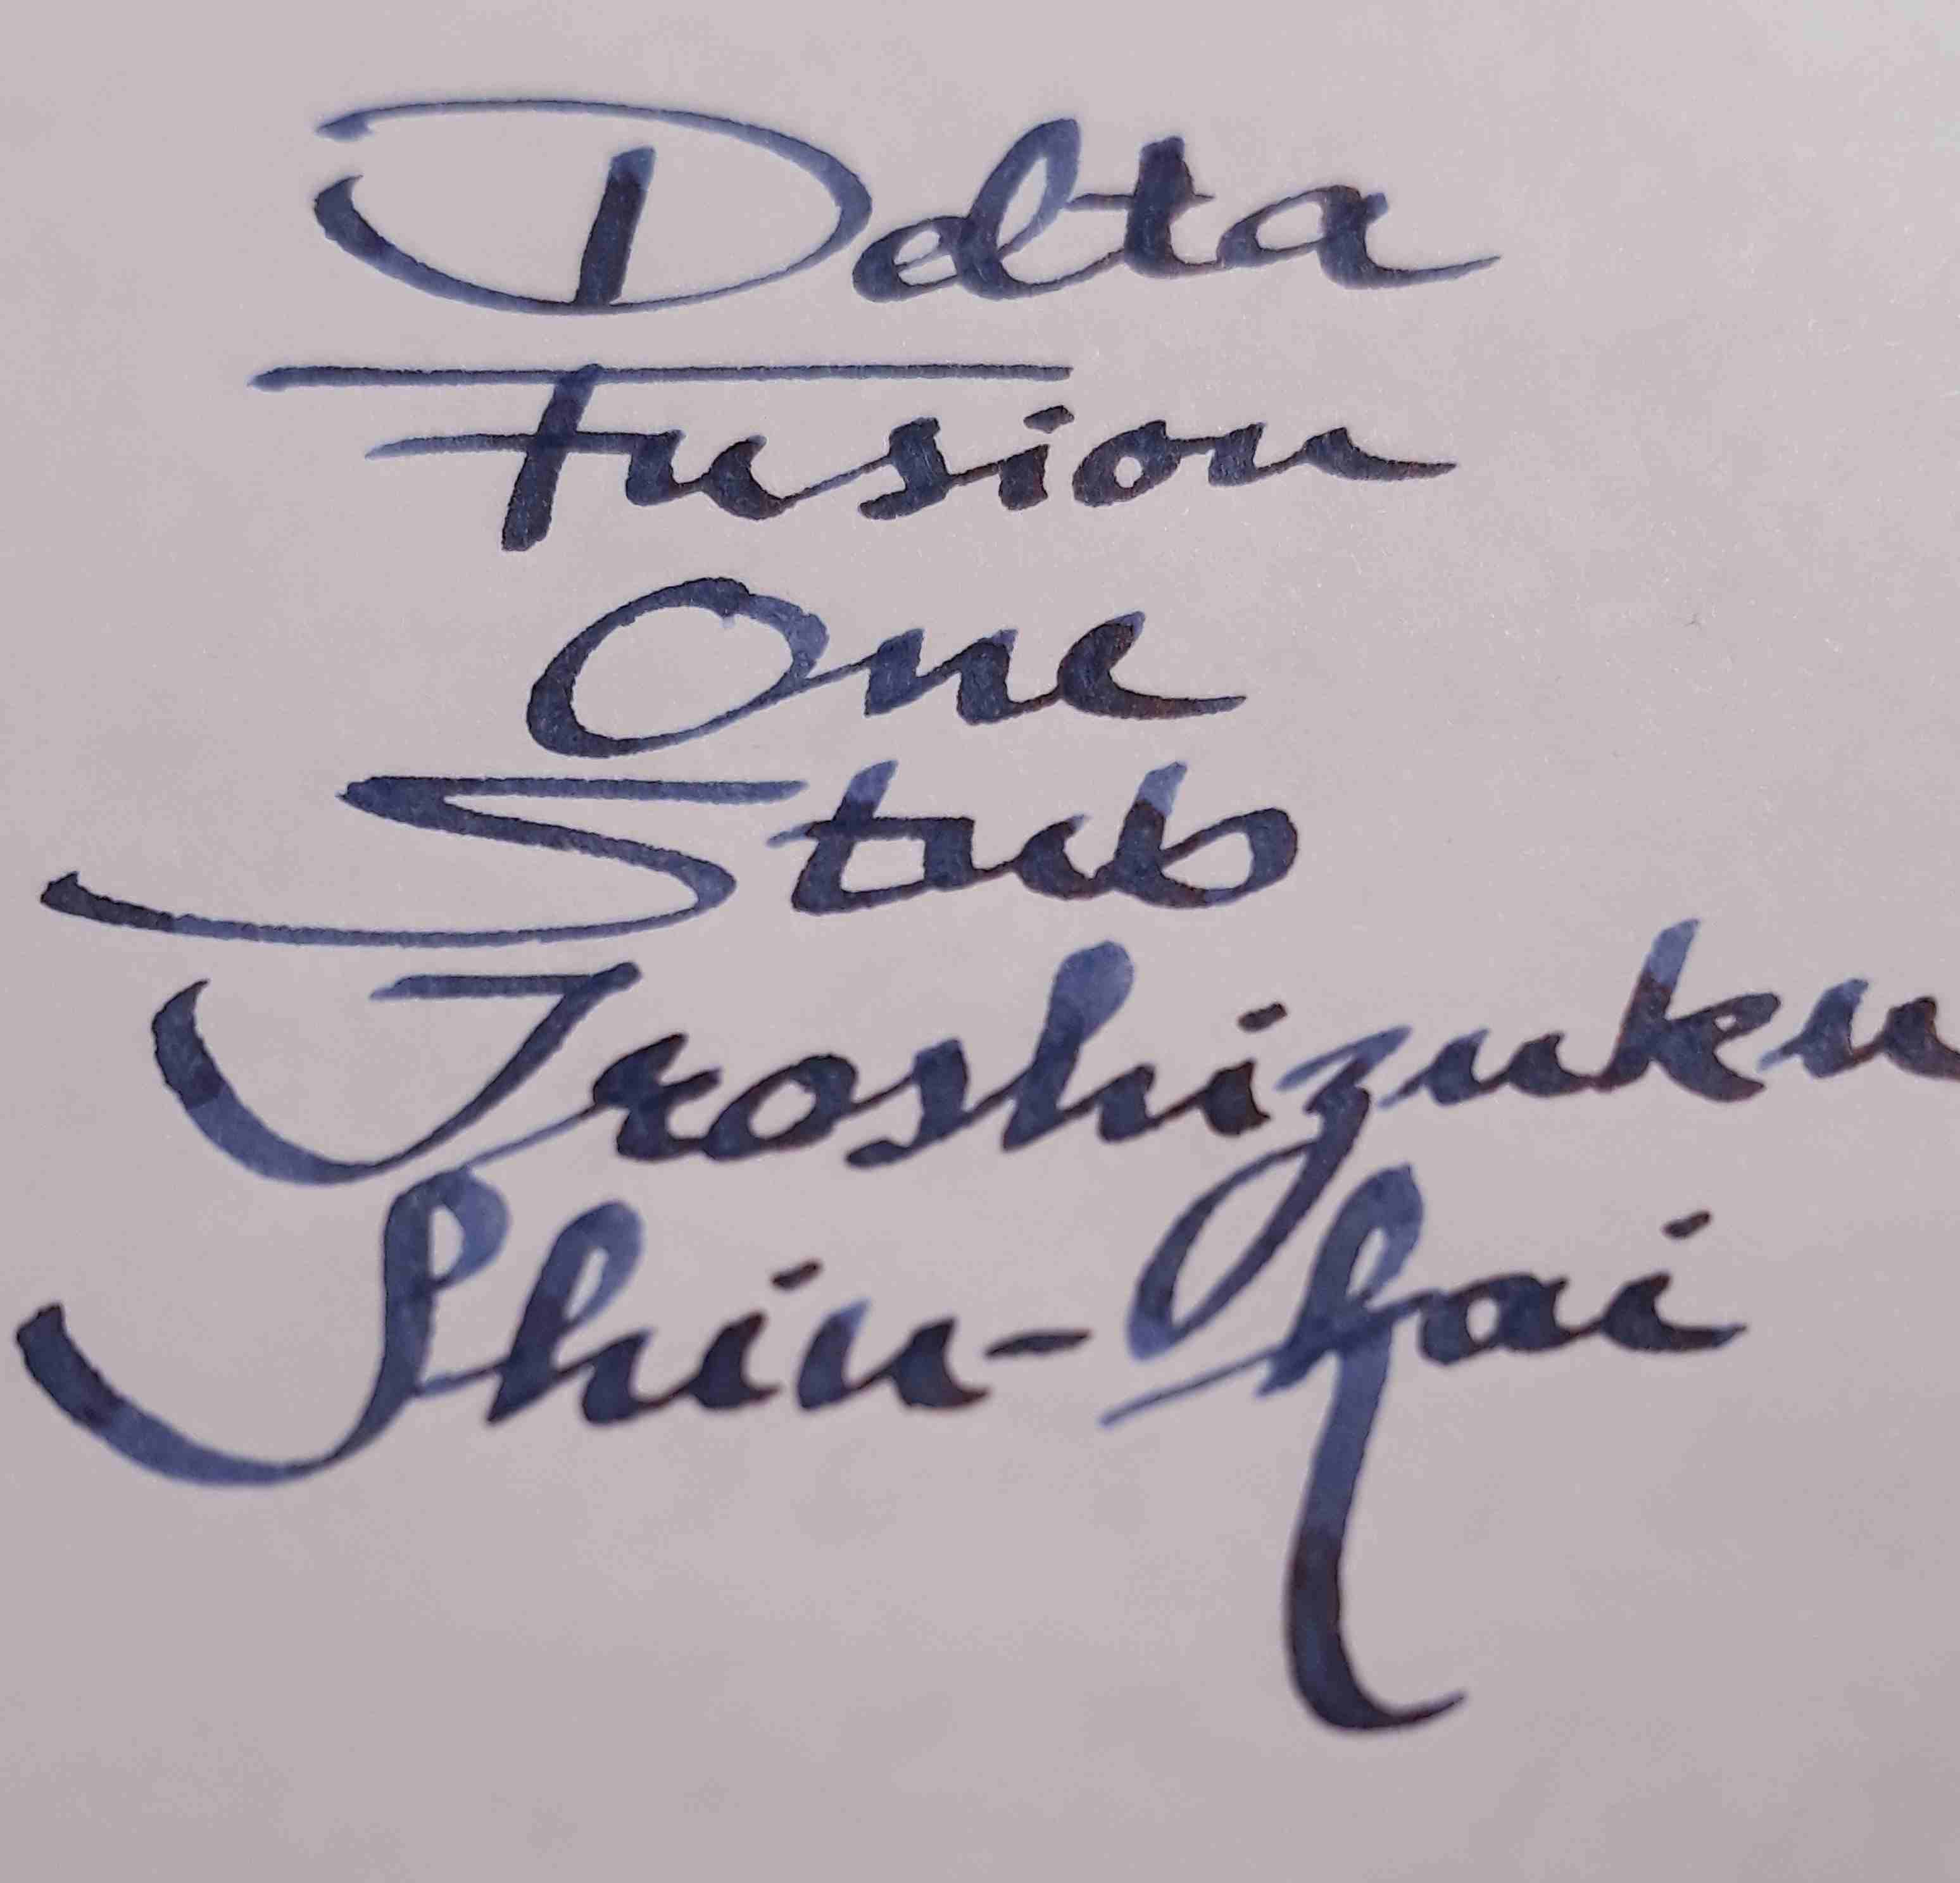 Delta
Fusion
One
Stub
Iroshizuku
Shin-kai